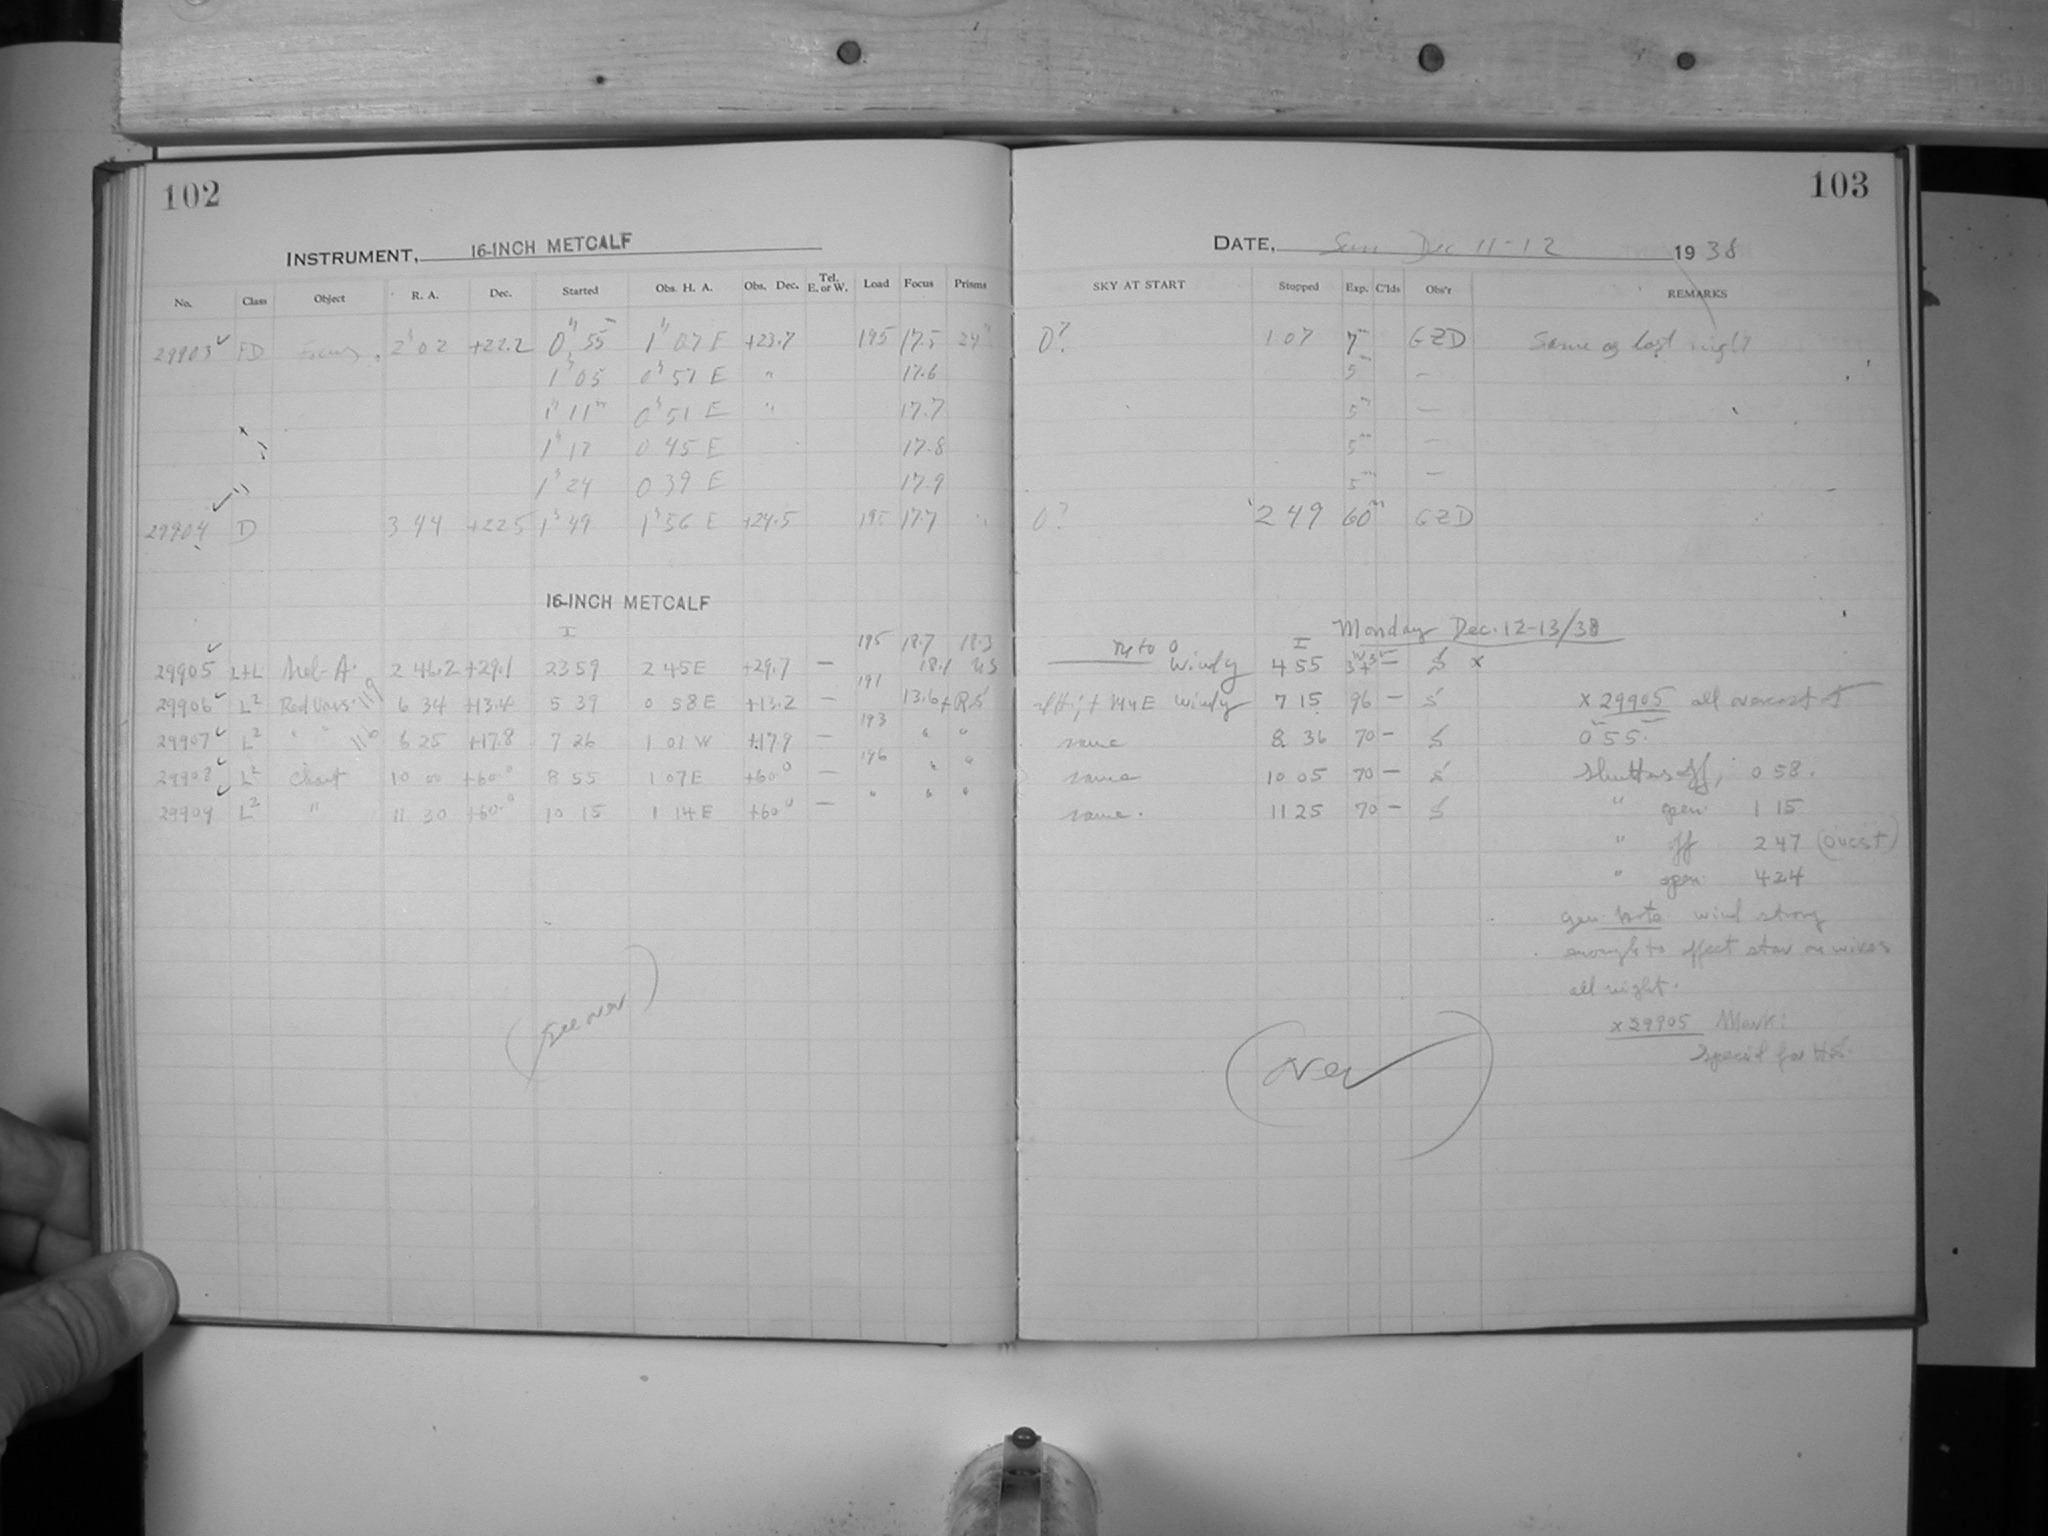 102
103
INSTRUMENT, 16-INCH METCALF
DATE, Sun Dec 11-12 1938
No. Class Object R. A. Dec. Started Obs. H. A. Obs. Dec. Tel. E. or W. Load Focus Prisms SKY AT START Stopped Exp. C'lds Obs'r REMARKS
29903 FD Focus 2h 02 +22.2 0h 55m 1h 07 E +23.7 195 17.5 24" 0? 1 07 7m GZD Same as last night
1h 05 0h 57 E " 17.6 5m —
1h 11m 0h 51 E " 17.7 5m —
1h 17 0 45 E 17.8 5m —
1h 24 0 39 E 17.9 5m —
29904 D 3 44 +22.5 1h 49 1h 56 E +24.5 195 17.7 " 0? 2 49 60m GZD
16-INCH METCALF
Monday Dec. 12-13/38
I 195 18.7 18.3 to 0 I
29905 L+L A. 2 46.2 +29.1 23 59 2 45 E +29.7 — 18.1 Windy 4 55 — S x
29906 L2 Red Vars. 119 6 34 +13.4 5 39 0 58 E +13.2 — 191 13.6 + RS Windy 7 15 96 — S x 29905 all overcast at
29907 L2 " " 110 6 25 +17.8 7 26 1 01 W +17.9 — 193 " " same 8 36 70 — S 0 55.
29908 L2 Chart 10 00 +60.0 8 55 1 07 E +60.0 — 196 " " same 10 05 70 — S Shutter off, 0 58.
29909 L2 " 11 30 +60.0 10 15 1 14 E +60.0 — " " " same. 11 25 70 — S " open 1 15
" off 2 47 (ovcst)
" open 4 24
gen. note wind strong
enough to effect star on wires
all night.
x 29905 Mark:
Special for HS.
(See over)
(over)